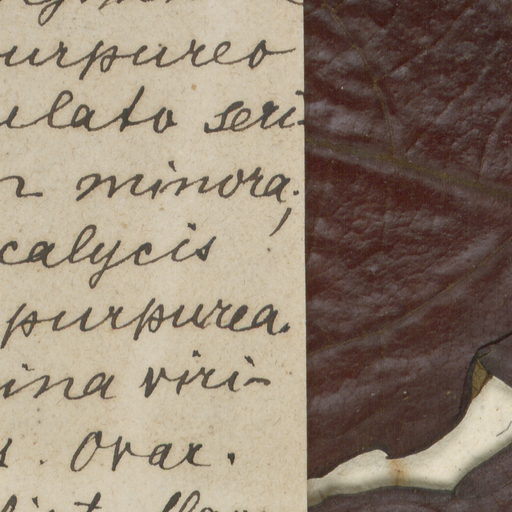 urpureo
ulato seri-
minora;
calycis
purpurea.
ina viri-
. Ovar.